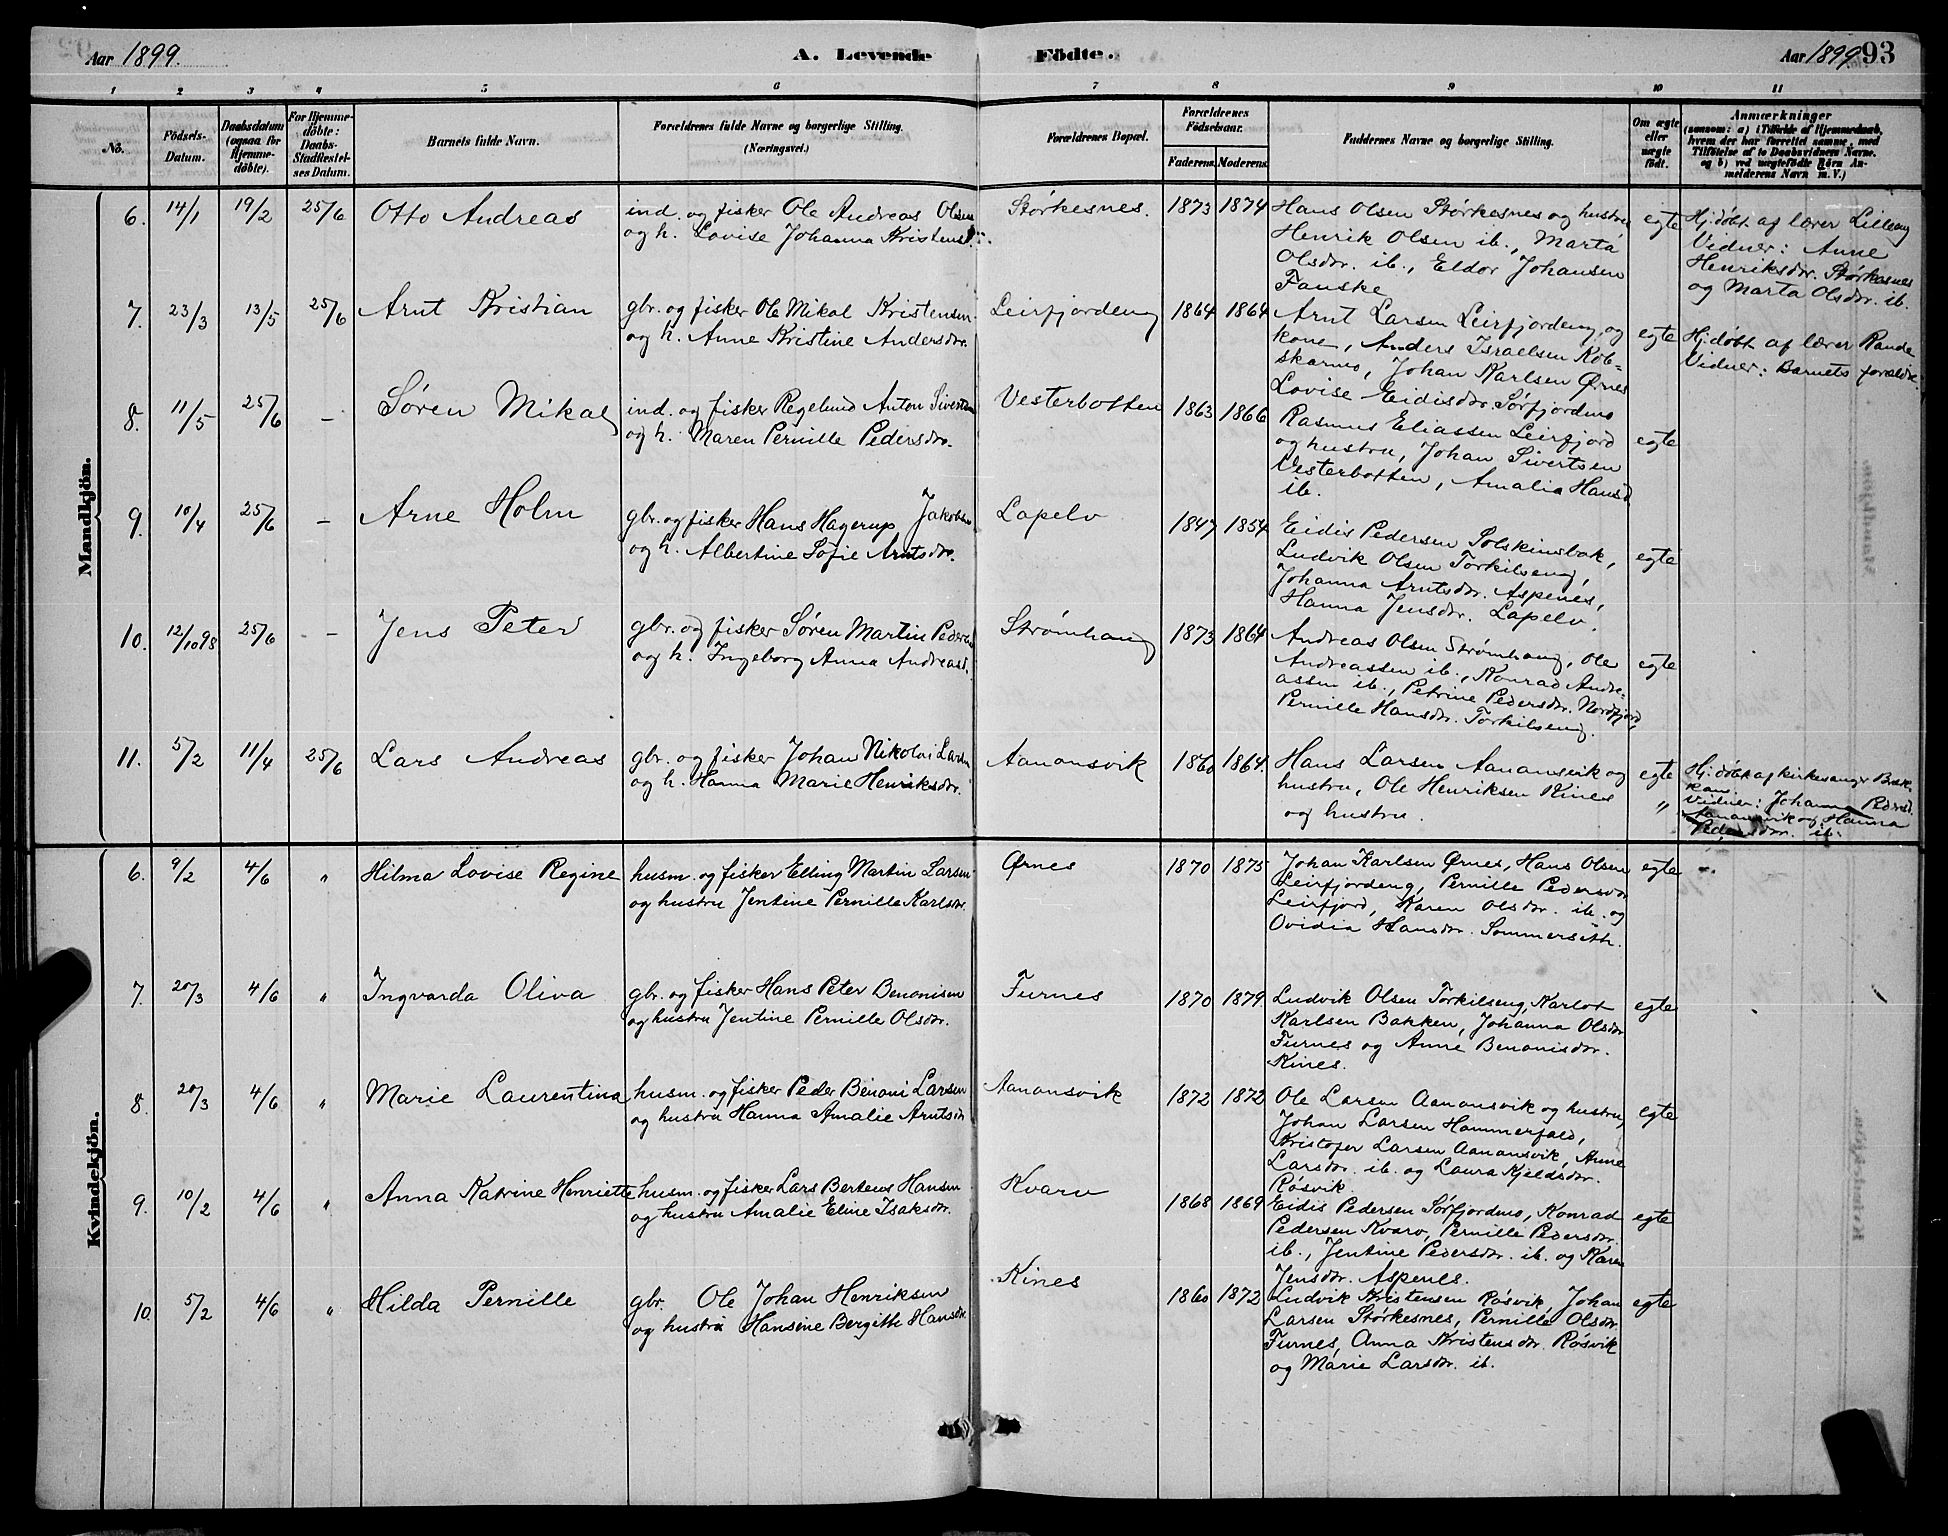 Aar 1899.
A. Levende
Födte.
Aar 1899
93
1 2 3 4 5 6 7 8 9 10 11
No.
Födsels-
Datum.
Daabsdatum
(ogsaa for
Hjemme-
döbte).
For Hjemme-
döbte:
Daabs-
Stadfestel-
ses Datum.
Barnets fulde Navn.
Forældrenes fulde Navne og borgerlige Stilling.
(Næringsvei.)
Forældrenes Bopæl.
Forældrenes
Födselsaar.
Faderens. Moderens.
Faddernes Navne og borgerlige Stilling.
Om ægte
eller
uægte
födt.
Anmærkninger
(saasom: a) i Tilfælde af Hjemmedaab,
hvem der har forrettet samme, med
Tilföielse af to Daabsvidners Navne,
og b) ved uægtefödte Börn An-
melderens Navn m. V.)
Mandkjön.
6. 14/1 19/2 25/6 Otto Andreas
ind. og fisker Ole Andreas Olsen
og h. Lovise Johanna Kristens
Størkesnes. 1873 1874
Hans Olsen Størkesnes og hustru
Henrik Olsen ib., Marta
Olsdtr. ib., Eldor Johansen
Fauske
egte
Hj: døbt af lærer Lilleeng
Vidner: Anne
Henriksdtr. Størkesnes
og Marta Olsdtr. ib.
7. 23/3 13/5 25/6 Arnt Kristian
gbr. og fisker Ole Mikal Kristensen
og h. Anne Kristine Andersdtr.
Leirfjordeng 1864 1864
Arnt Larsen Leirfjordeng, og
kone, Anders Israelsen Kob-
skarnes, Johan Karlsen Ørnes
Lovise Eidisdtr. Sørfjordmo
egte
Hj: døbt af lærer Rande
Vidner: Barnets forældre.
8. 11/5 25/6 – Søren Mikal
ind. og fisker Regelund Anton Sivertsen
og h. Maren Pernille Pedersdtr.
Vesterbotten 1863 1866
Rasmus Eliassen Leirfjord
og hustru, Johan Sivertsen
Vesterbotten, Amalia Hansd.
ib.
egte
9. 10/4 25/6 – Arne Holm
gbr. og fisker Hans Hagerup Jakobsen
og h. Albertine Sofie Arntsdtr.
Lapelv 1847 1854
Eidis Pedersen Solskinsbak,
Ludvik Olsen Torkilseng,
Johanna Arntsdtr. Aspenes,
Hanna Jensdtr. Lapelv.
egte
10. 12/10 98 25/6 – Jens Peter
gbr. og fisker Søren Martin Pedersen
og h. Ingeborg Anna Andreasd.
Strømhaug 1873 1864
Andreas Olsen Strømhaug, Ole
Andreassen ib., Konrad Andre-
assen ib., Petrine Pedersdtr. Nordfjord,
Pernille Hansdtr. Torkilseng.
egte
11. 5/2 11/4 25/6 Lars Andreas
gbr. og fisker Johan Nikolai Larsen
og h. Hanna Marie Henriksdtr.
Aanansvik 1860 1864.
Hans Larsen Aanansvik og
hustru, Ole Henriksen Kines
og hustru.
egte
"
Hj: døbt af kirkesanger Bak-
ken.
Vidner: Johanna Pedersd.
Aanansvik og Hanna
Pedersdtr. ib.
Kvindekjön.
6. 9/2 4/6 " Hilma Lovise Regine
husm. og fisker Elling Martin Larsen
og hustru Jentine Pernille Karlsdtr.
Ørnes 1870 1875
Johan Karlsen Ørnes, Hans Olsen
Leirfjordeng, Pernille Pedersdtr
Leirfjord, Karen Olsdtr. ib. og
Ovidia Hansdtr. Sommerseth.
egte
7. 20/3 4/6 " Ingvarda Oliva
gbr. og fisker Hans Peter Benonisen
og hustru Jentine Pernille Olsdtr.
Furnes 1870 1879.
Ludvik Olsen Torkilseng, Karlot
Karlsen Bakken, Johanna Olsdtr
Furnes og Anne Benonisdtr.
Kines.
egte
8. 20/3 4/6 " Marie Laurentina
husm. og fisker Peder Benoni Larsen
og hustru Hanna Amalie Arntsdtr
Aanansvik 1872 1872
Ole Larsen Aanansvik og hustru,
Johan Larsen Hammerfald,
Kristofer Larsen Aanansvik, Anne
Larsdtr. ib. og Laura Kjeldsdtr.
Røsvik.
egte
9. 10/2 4/6 " Anna Katrine Henriette
husm. og fisker Lars Berteus Hansen
og hustru Amalie Eline Isaksdtr.
Kvarv 1868 1869
Eidis Pedersen Sørfjordmo, Konrad
Pedersen Kvarv, Pernille Pedersdtr.
ib., Jentine Pedersdtr. ib. og Karen
Jensdtr. Aspenes.
egte
10. 5/2 4/6 " Hilda Pernille
gbr. Ole Johan Henriksen
og hustru Hansine Bergitte Hansdtr.
Kines 1860 1872
Ludvik Kristensen Røsvik, Johan
Larsen Størkesnes, Pernille Olsdtr
Furnes, Anna Kristensdtr. Røsvik
og Marie Larsdtr. ib.
egte